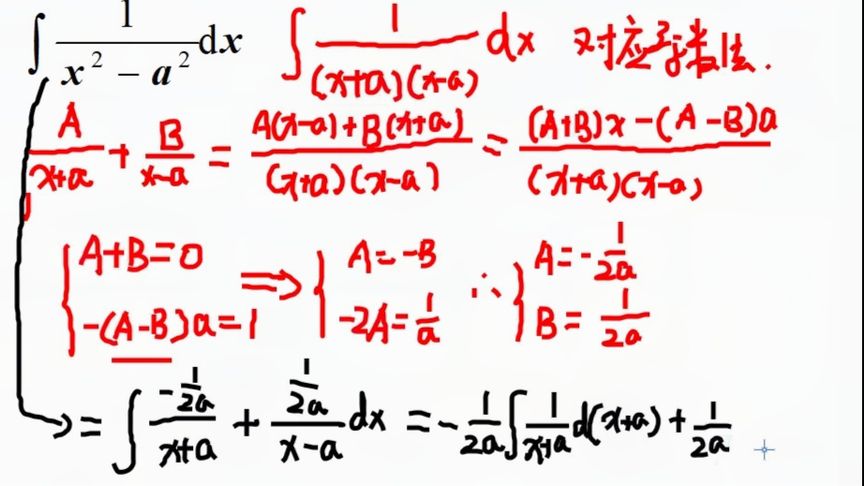 ∫ 1/(x² − a²) dx  ∫ 1/((x+a)(x-a)) dx 对应系数法.
A/(x+a) + B/(x-a) = (A(x-a)+B(x+a))/((x+a)(x-a)) = ((A+B)x-(A-B)a)/((x+a)(x-a))
{A+B=0, -(A-B)a=1 ⟹ {A=-B, -2A=1/a ∴ {A=-1/(2a), B=1/(2a)
= ∫ (-1/(2a))/(x+a) + (1/(2a))/(x-a) dx = -1/(2a) ∫ 1/(x+a) d(x+a) + 1/(2a)